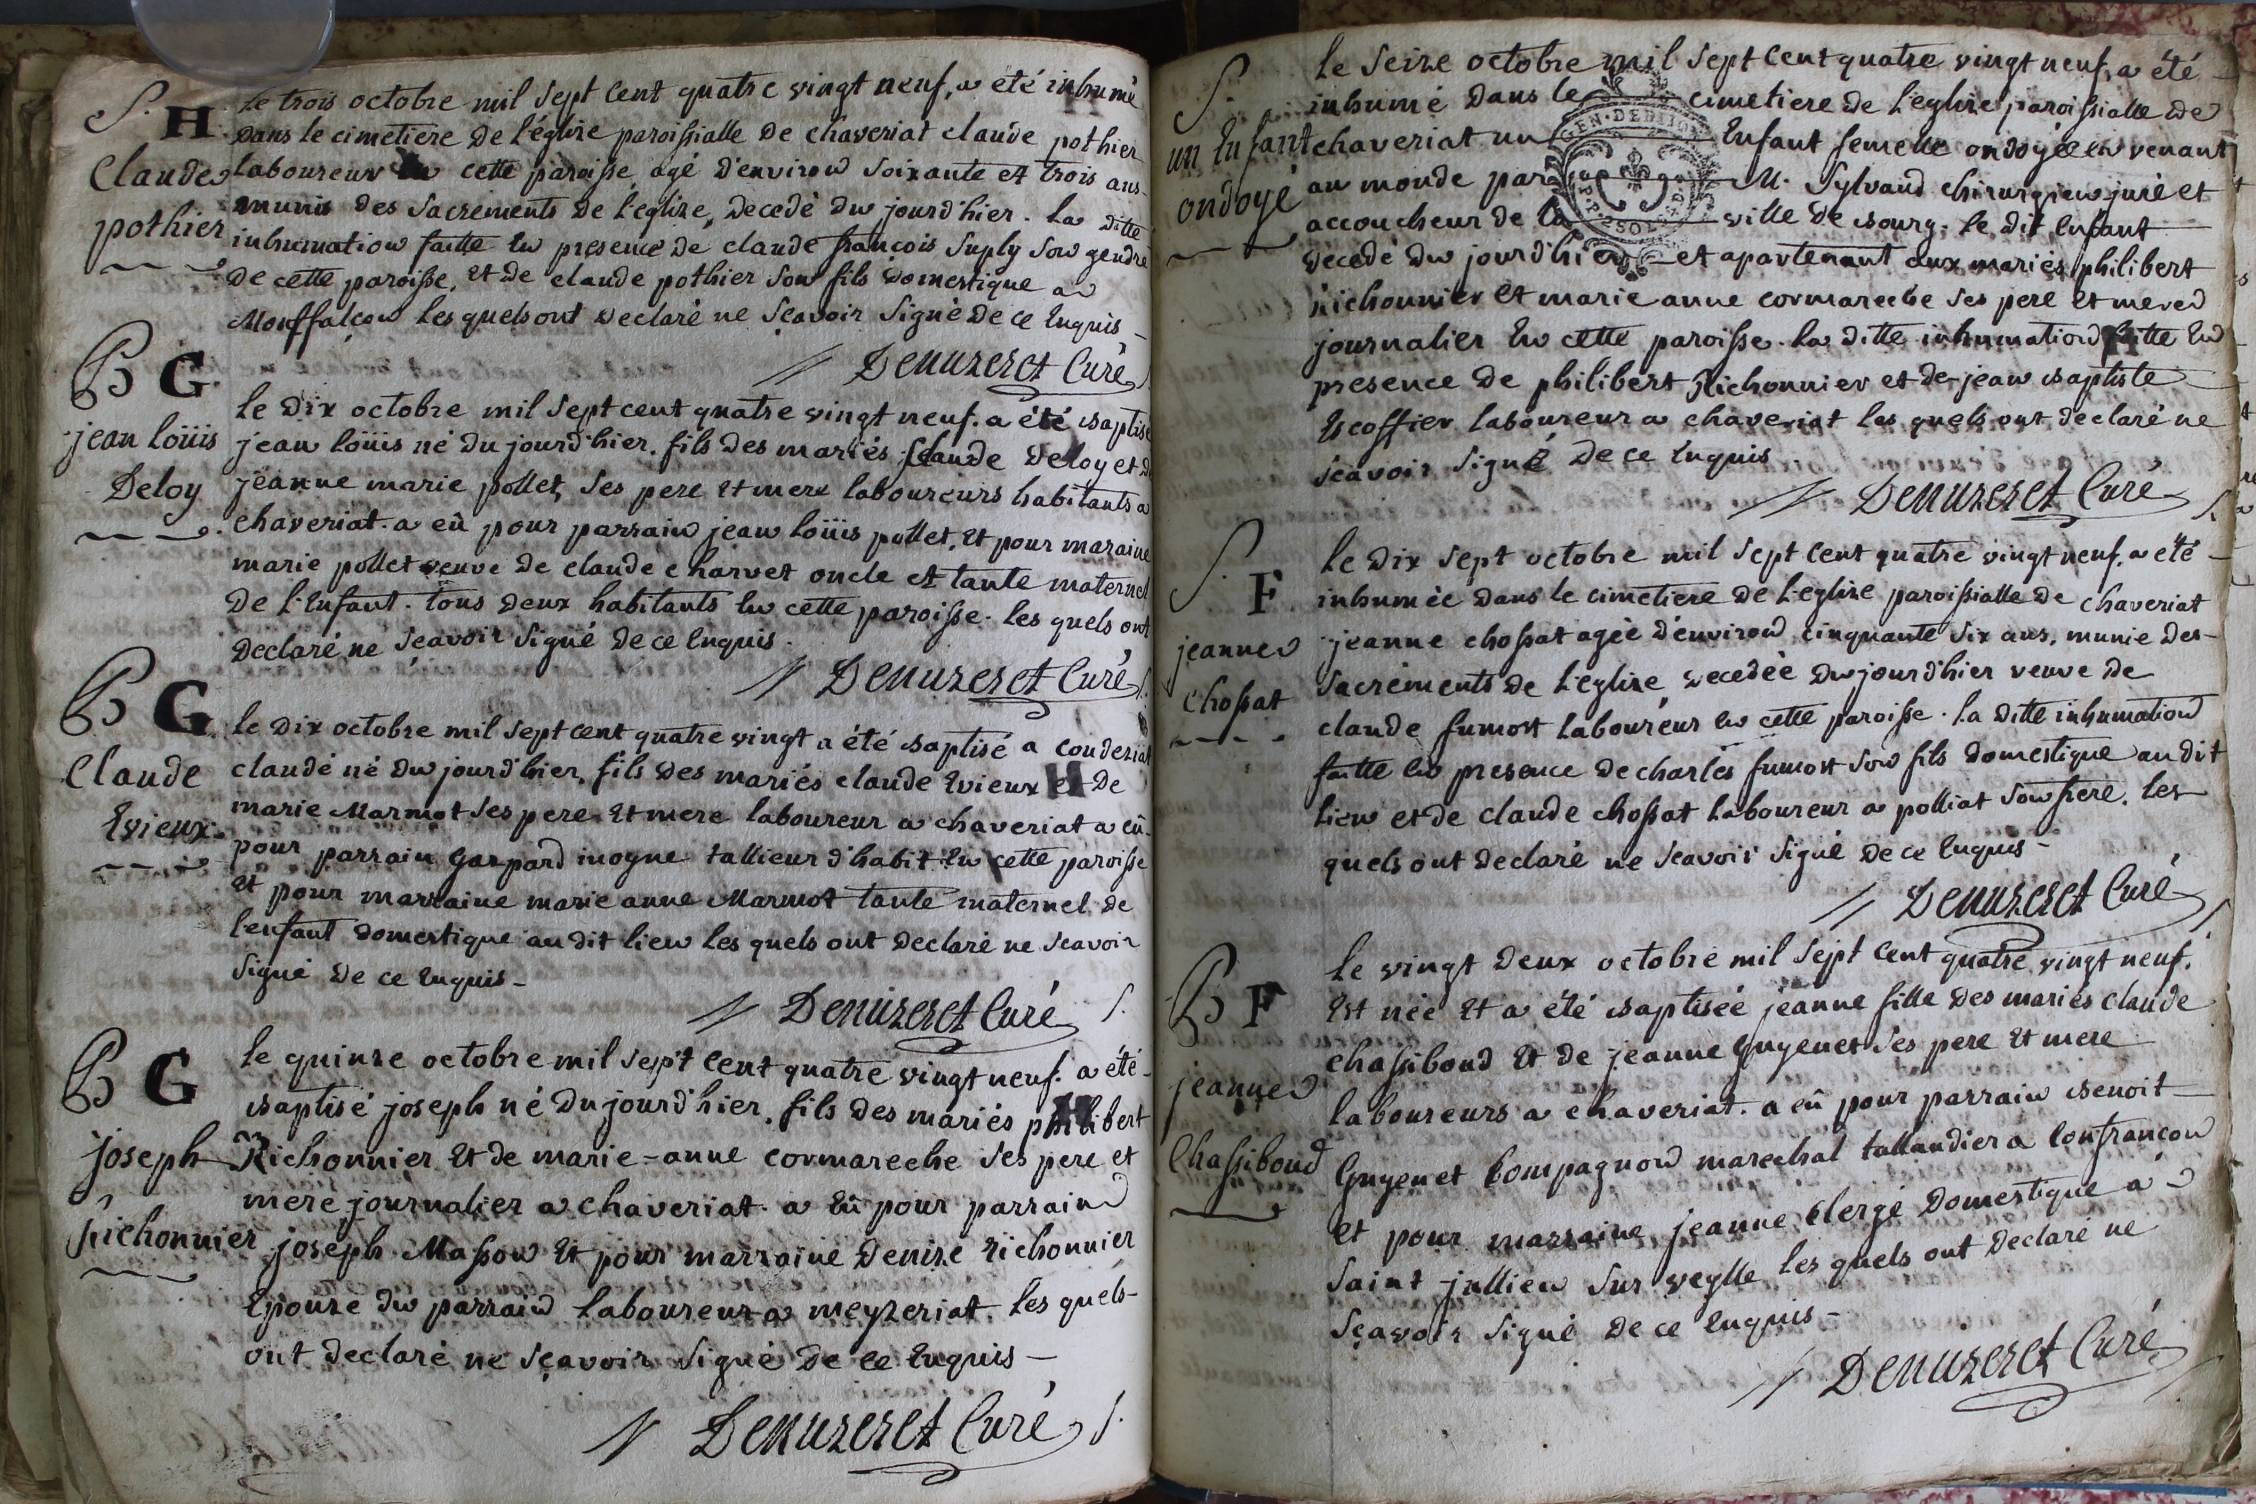 S. H
Claude
pothier
Le trois octobre mil sept cent quatre vingt neuf, a été inhumé
dans le cimetiere de l'église paroissialle de chaveriat claude pothier
laboureur en cette paroisse agé d'environ soixante et trois ans
munis des sacrements de l'eglize, decedé du jourd'hier. la ditte
inhumation faitte en presence de claude françois suply son gendre
de cette paroisse, et de claude pothier son fils domestique a
Monffalcon lesquels ont declaré ne sçavoir signé de ce enquis
Denuzeret Curé
B G
jean loüis
Deloy
le dix octobre mil sept cent quatre vingt neuf. a été baptisé
jean loüis né du jourd'hier. fils des mariés claude Deloy et de
jeanne marie pollet, ses pere et mere laboureurs habitants a
chaveriat. a eû pour parrain jean loüis pollet, et pour maraine
marie pollet veuve de claude charvet oncle et tante maternel
de l'enfant. tous deux habitants en cette paroisse. les quels ont
declaré ne sçavoir signé de ce enquis.
Denuzeret Curé
B G
Claude
Evieux
le dix octobre mil sept cent quatre vingt a été baptisé a condeziat
claude né du jourd'hier, fils des mariés claude Evieux et de
marie Marmot ses pere et mere laboureur a chaveriat a eû
pour parrain gaspard inogne tallieur d'habit en cette paroisse
et pour marraine marie anne Marmot tante maternel de
l'enfant domestique au dit lieu les quels ont declaré ne sçavoir
signé de ce enquis
Denuzeret Curé
B G
joseph
Richonnier
le quinze octobre mil sept cent quatre vingt neuf. a été
baptisé joseph né du jourd'hier, fils des mariés philibert
Richonnier et de marie-anne cormareche ses pere et
mere journalier a chaveriat. a eû pour parrain
joseph Masson et pour marraine denize richonnier
Epouze du parrain laboureur a meyzeriat. les quels
ont declaré ne sçavoir signé de ce enquis
Denuzeret Curé
S.
un Enfant
ondoyé
GEN. DE
le seize octobre mil sept cent quatre vingt neuf, a été
inhumé dans le cimetiere de l'eglize paroissialle de
chaveriat un Enfant femelle ondoyée en venant
au monde par M. Sylvand chirurgien juré et
accoucheur de la ville de bourg. le dit enfant
decedé du jourd'hier et apartenant aux mariés philibert
Richonnier et marie anne cormareche ses pere et mere
journalier en cette paroisse. la ditte inhumation faitte en
presence de philibert Richonnier et de jean baptiste
Escoffier laboureur a chaveriat les quels ont declaré ne
sçavoir signé de ce enquis
Denuzeret Curé
S. F
jeanne
chossat
le dix sept octobre mil sept cent quatre vingt neuf. a été
inhumée dans le cimetiere de l'eglize paroissialle de chaveriat
jeanne chossat agée d'environ cinquante six ans, munie des
sacrements de l'eglize decedée du jourd'hier veuve de
claude fumost laboureur en cette paroisse. la ditte inhumation
faitte en presence de charles fumost son fils domestique au dit
lieu et de claude chossat laboureur a polliat son frere. les
quels ont declaré ne sçavoir signé de ce enquis
Denuzeret Curé
B F
jeanne
chassiboud
le vingt deux octobre mil sept cent quatre vingt neuf.
Est née et a été baptisée jeanne fille des mariés claude
chassiboud et de jeanne guyenet ses pere et mere
laboureurs a chaveriat. a eû pour parrain benoit
guyenet compagnon marechal tallandier a confrancon
et pour marraine jeanne clergé domestique a
saint jullien sur veylle les quels ont declaré ne
sçavoir signé de ce enquis
Denuzeret Curé